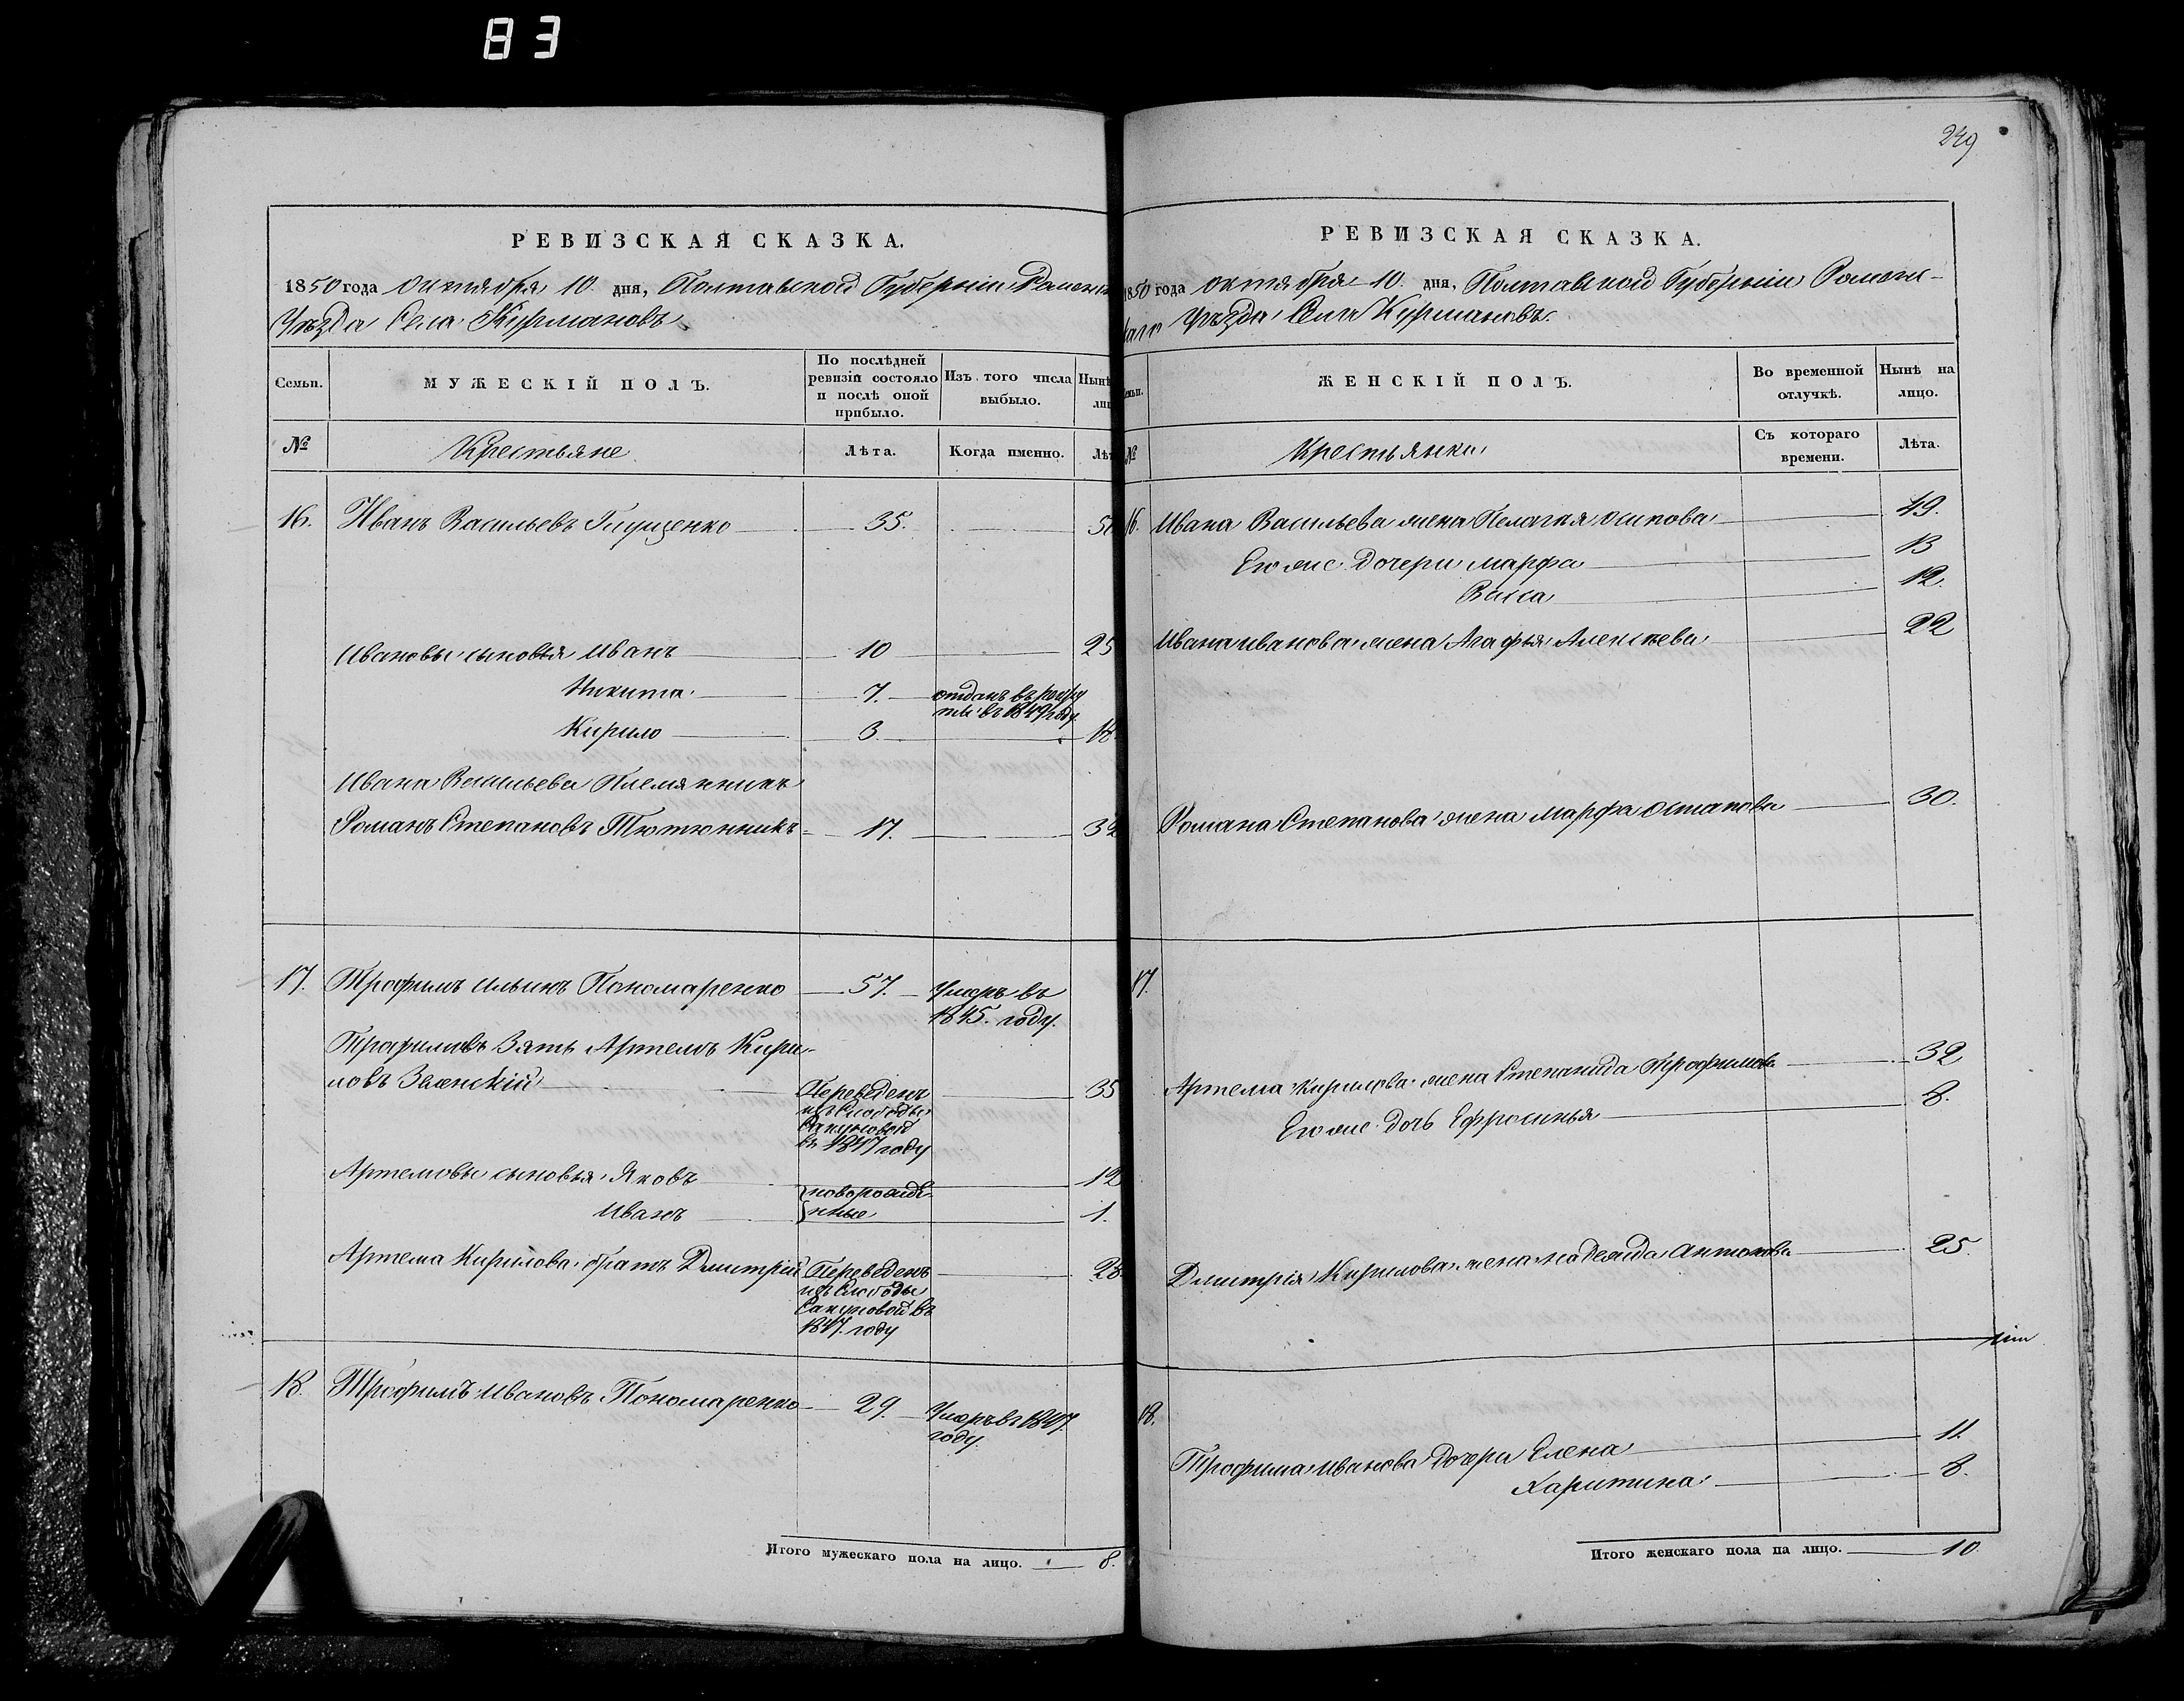 83
РЕВИЗСКАЯ СКАЗКА.
1850 года Октября 10. дня, Полтавской Губерніи Роменс
Уѣзда Села Курмановъ
Семьи.
МУЖЕСКІЙ ПОЛЪ.
По послѣдней ревизіи состояло и послѣ оной прибыло.
Изъ того числа выбыло.
Нынѣ
лиц
№
Крестьяне
Лѣта.
Когда именно.
Лѣт
16. Иванъ Васильевъ Глущенко 35. 51
Ивановы сыновья Иванъ 10 25
Никита 7. отданъ въ рекру
ты въ 1849 году
Кирило 3. 18.
Ивана Васильева Племянникъ
Романъ Степановъ Тютюнникъ 17. 32
17. Трофимъ Ильинъ Пономаренко 57. Умеръ въ
1845. году.
Трофимовъ Зять Артемъ Кири-
ловъ 35
Переведенъ
изъ Слободы
въ 1847 году
Артемовы сыновья Яковъ 12
новорожде-
нные
Иванъ 1.
Артема Кирилова братъ Дмитрій 28.
Переведенъ
изъ Слободы
въ
1847. году
18. Трофимъ Ивановъ Пономаренко 29. Умеръ въ 1847.
году.
Итого мужескаго пола на лицо. 8.
249
РЕВИЗСКАЯ СКАЗКА.
1850 года Октября 10. дня, Полтавской Губерніи Ромен-
скаго Уѣзда Села Курмановъ.
емьи.
ЖЕНСКІЙ ПОЛЪ.
Во временной отлучкѣ.
Нынѣ на лицо.
№
Крестьянки
Съ котораго времени.
Лѣта.
16. Ивана Васильева жена Пелагия Осипова 49.
Его же дочери Марфа 13
Васса 12.
Ивана Иванова жена Агафья Алексѣева 22
Романа Степанова жена Марфа Остапова 30.
17.
Артема Кирилова жена Степанида Трофимова 32
Его же дочь Ефросинья 8.
Дмитрія Кирилова жена Надежда Антонова 25.
18.
Трофима Иванова дочери Елена 11.
Харитина 8.
Итого женскаго пола на лицо. 10.